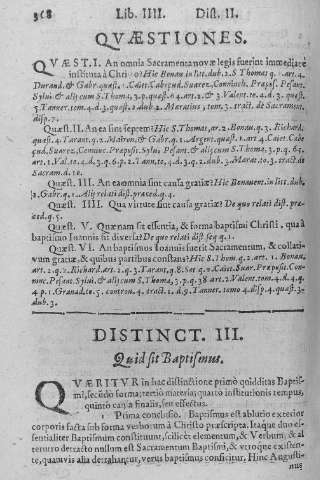 368 Lib. IIII. Dist. II.
QVÆSTIONES.
QVÆST. I. An omnia Sacramenta novæ legis fuerint immediatè
instituta à Christo? Hic Bonau. in litt. dub. 2. S Thomas q. 1. art. 4.
Durand. & Gabr. quæst. 1. Caiet. Cabr.
Sylui. & alij cum S. Thoma, 3. p. quæst. 64. art. 2. & 3. Valent. to. 4. d. 3. quæst.
5. Tanner. tom. 4. d. 3. quæst. 2. dub. 2. Maratius, tom. 3. tract. de Sacrament.
disp. 7.
Quæst. II. An ea sint septem? Hic S. Thomas, ar. 2. Bonau. q. 3. Richard.
quæst. 4. Tarant. q. 2. Gabr. q. 1. Argent. quæst. 1. art. 4. Caiet.
Suarez, Præpos. Sylui. Pesant. & alij cum S. Thoma, 3. p. q. 65,
art. 1. Val. to. 4. d. 3. q. 6. p. 2. Tann. to. 4. d. 3. q. 2. dub. 3. Marat. to. 3. tract. de
Sacram. d. 10.
Quæst. III. An ea omnia sint causa gratiæ? Hic Bonauent. in litt. dub.
3. Gabr. q. 1. Alij relati dist. præced. q. 4.
Quæst. IIII. Qua virtute sint causa gratiæ? De quo relati dist. præ-
ced. q. 5.
Quæst. V. Quænam sit essentia, & forma baptismi Christi, qua à
baptismo Ioannis sit diversa? De quo relati dist. seq. q. 1.
Quæst. VI. An baptismus Ioannis fuerit Sacramentum, & collati-
vum gratiæ, & quibus partibus constans? Hic S. Thom. q. 2. art. 1. Bonau.
art. 2. q. 2. Richard. art. 2. q. 3. Tarant. q. 8. Sot. q. 2. Caiet. Suar. Præpos. Con-
ninc. Pesant. Sylui. & alij cum S. Thoma, 3. p. q. 38 art. 2. Valent. tom. 4. d. 4. q.
4 p. 1. Granad. to. 5. contro. 4. tract. 1. d. 9. Tanner. tomo 4. disp. 4. quæst. 3.
dub. 3.
DISTINCT. III.
Quid sit Baptismus.
QVÆRITVR in hac distinctione primò quidditas Baptis-
mi, secundò forma; tertiò materia; quarto institutionis tempus,
quintò causa finalis, seu effectus.
Prima conclusio. Baptismus est ablutio exterior
corporis facta sub forma verborum à Christo præscripta. Itaque duo es-
sentialiter Baptismum constituunt, scilicet elementum, & Verbum, & al-
terutro detracto nullum est Sacramentum Baptismi, & utroque existen-
te, quamvis alia detrahantur, verus baptismus conficitur. Hinc Augusti-
nus